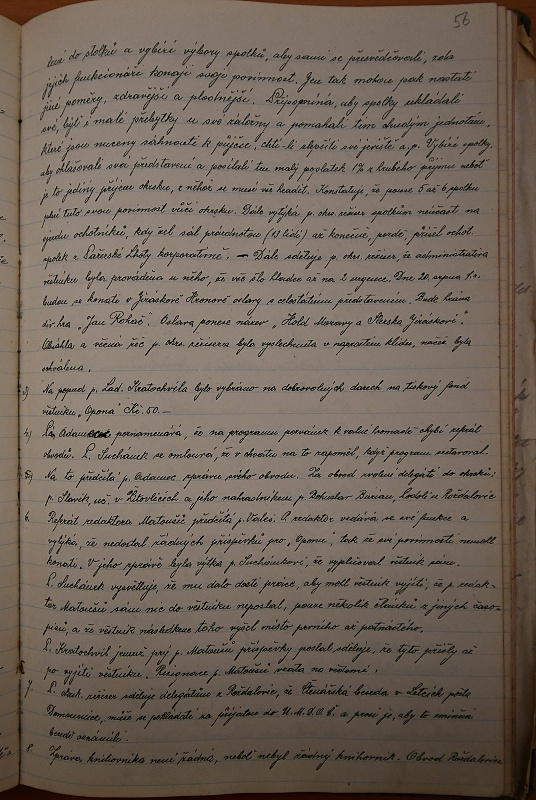 56
do stolků a vybírí výbory spolků, aby sami se přesvědčovali, zda
jejich funkcionáře konají svoje povinnosti. Jen tak mohou pak nastati
jiné poměry, zdravější a plodnější. Připomíná, aby spolky ukládali
své, byť i malé přebytky u své záložny a pomáhali tím chudým jednotám,
které jsou nuceny sáhnouti k půjčce, chtí-li slepšiti své jeviště a p. Vybízí spolky,
aby ohlašovali svá představení a posílali ten malý poplatek 1% z hrubého příjmu neboť
je to jediný příjem okrsku, z něhož se musí vše hradit. Konstatuje, že pouze 5 až 6 spolků
plní tuto svou povinnost vůči okrsku. Dále vytýká p. okrs. režisér spolkům neúčast na
sjezdu ochotníků, kdy zel sál prázdnotou (13 lidí) až konečně, přišel ochot.
spolek z Lhoty korporativně. — Dále sděluje p. okrs. režisér, že administrativa
věstníku byla prováděna u něho, že vše šlo hladce až na 2 urgence. Dne 20. srpna t.r.
budou se konati v Jiráskově Hronově oslavy s celostátním představením. Bude hrána
div. hra „Jan Roháč". Oslava ponese název „Hold Moravy a Slezska Jiráskovi".
Obsáhlá a věcná řeč p. okrs. režiséra byla vyslechnuta v naprostém klidu, načež byla
schválena.
3) Na popud p. Lad. Kratochvíla bylo vybráno na dobrovolných darech na tiskový fond
věstníku „Opona" Kč. 50.—
4) Adamec poznamenává, že na programu pozvánek k valné hromadě chybí referát
obvodů. P. Suchánek se omlouvá, že v chvatu na to zapoměl, když program sestavoval.
5) Na to předčítá p. Adamec zprávu svého obvodu. Za obvod zvolení delegáti do okrsku:
p. Slavík, uč. v Křovicích a jeho náhradníkem p. Bohuslav Burian, Rožďalovice
6. Referát redaktora Matouše předčítá p. Valeš. P. redaktor vzdává se své funkce a
vytýká, že nedostal žádných příspěvků pro „Oponu", tak že své povinnosti nemohl
konati. V jeho zprávě byla výtka p. Suchánkovi, že vyplňoval věstník sám.
P. Suchánek vysvětluje, že mu dalo dosti práce, aby mohl věstník vyjíti, že p. redak-
tor Matoušů sám nic do věstníku neposlal, pouze několik článků z jiných časo-
pisů, a že věstník následkem toho vyšel místo prvního až patnáctého.
P. Kratochvíl jemuž prý p. Matoušů příspěvky poslal sděluje, že tyto přišly až
po vyjití věstníku. Resignace p. Matoušů vzata na vědomí.
7 P. okrsk. režisér sděluje delegátům z Rožďalovic, že Čtenářská beseda v Letech pošta
Domousnice, může se pokládati za přijatou do U.M.D.O.Č. a prosí je, aby to zmíněné
besedě oznámili.
8. Zpráva knihovníka není žádná, neboť nebyl žádný knihovník. Obvod Rožďalovice